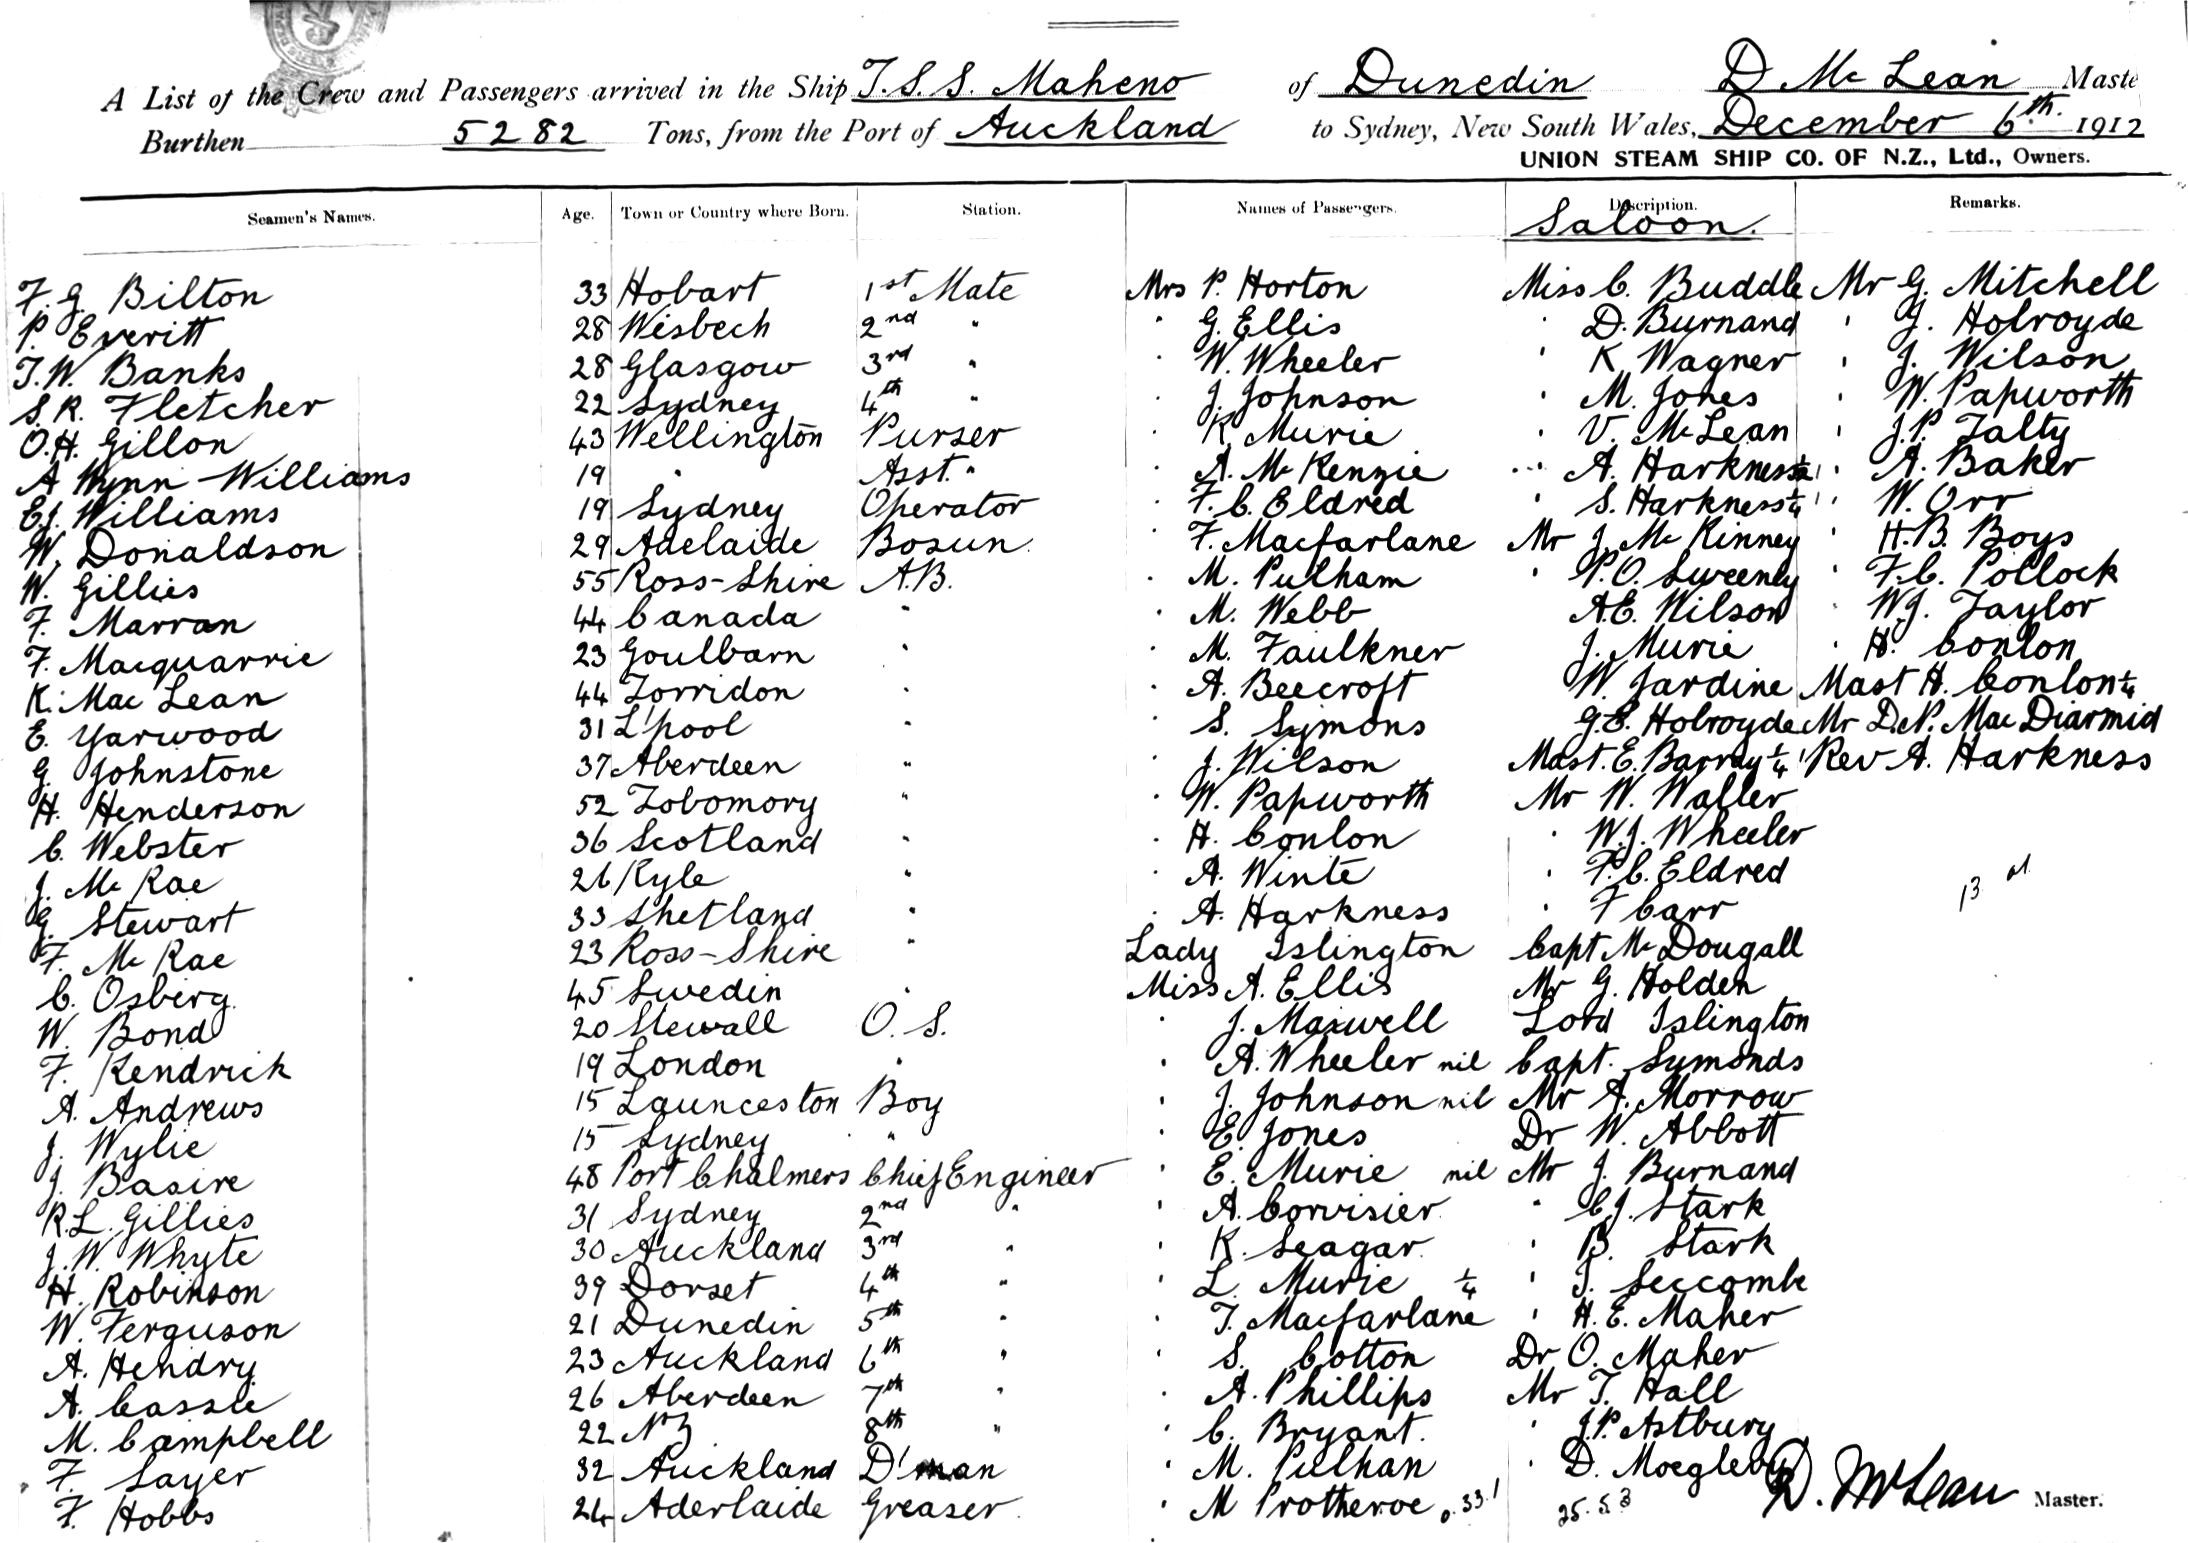 A List of the Crew and Passengers arrived in the Ship T.S.S. Maheno of Dunedin D Mc Lean Maste
Burthen 5282 Tons, from the Port of Auckland to Sydney, New South Wales, December 6th. 1912
UNION STEAM SHIP CO. OF N.Z., Ltd., Owners.
Seamen's Names. Age. Town or Country where Born. Station. Names of Passengers. Description. Remarks.
Saloon.
F. G. Bilton 33 Hobart 1st Mate Mrs P. Horton Miss C. Buddle Mr G. Mitchell
P. Everitt 28 Wisbech 2nd " " G. Ellis " D. Burnand " J. Holroyde
T. W. Banks 28 Glasgow 3rd " " W. Wheeler " K Wagner " J. Wilson
S. R. Fletcher 22 Sydney 4th " " J. Johnson " M. Jones " W. Papworth
O. H. Gillon 43 Wellington Purser " K. Murie " V. McLean " J. P. Talty
A Wynn-Williams 19 " Asst. " " A. McKenzie " A. Harkness 1/2 " A. Baker
E. J. Williams 19 Sydney Operator " F. C. Eldred " S. Harkness 1/4 " W. Orr
W. Donaldson 29 Adelaide Bosun. " F. Macfarlane Mr J. McKinney " H. B. Boys
W. Gillies 55 Ross-Shire A.B. " M. Pulham " P. O. Sweeney " F. C. Pollock
F. Marran 44 Canada " " M. Webb A. E. Wilson " W. J. Taylor
F. Macquarrie 23 Goulbarn " " M. Faulkner J. Murie " H. Conlon
K. MacLean 44 Torridon " " A. Beecroft W. Jardine Mast H. Conlon 1/4
E. Yarwood 31 L'pool " " S. Symons G. E. Holroyde Mr D. N. MacDiarmid
G. Johnstone 37 Aberdeen " " J. Wilson Mast. E. Barray 1/4 Rev A. Harkness
H. Henderson 52 Tobomory " " W. Papworth Mr W. Waller
C. Webster 36 Scotland " " H. Conlon " W. J. Wheeler
J. McRae 26 Kyle " " A. Winte " F. C. Eldred
G. Stewart 33 Shetland " " A. Harkness " F Carr 13
F. McRae 23 Ross-Shire " Lady Islington Capt McDougall
C. Osberg. 45 Swedin " Miss A. Ellis Mr G. Holden
W. Bond 20 Stewall O. S. " J. Maxwell Lord Islington
F. Kendrick 19 London " " A. Wheeler nil Capt. Symonds
A. Andrews 15 Launceston Boy " J. Johnson nil Mr A. Morrow
J. Wylie 15 Sydney " " E. Jones Dr W. Abbott
J. Basire 48 Port Chalmers Chief Engineer " E. Murie nil Mr J. Burnand
R. L. Gillies 31 Sydney 2nd " " A. Corvisier " C. J. Stark
J. W. Whyte 30 Auckland 3rd " " K. Seagar " B. Stark
H. Robinson 39 Dorset 4th " " L. Murie 1/4 " S. Seccombe
W. Ferguson 21 Dunedin 5th " " T. Macfarlane " H. E. Maher
A. Hendry 23 Auckland 6th " " S. Cotton Dr O. Maher
A. Cassie 26 Aberdeen 7th " " A. Phillips Mr T. Hall
M. Campbell 22 NZ 8th " " C. Bryant. " J. P. Astbury
F. Sayer 32 Auckland D'man " M. Pulhan " D. Moegleby
F. Hobbs 24 Aderlaide Greaser " M Protheroe 33.1 25.5.3 D. McLean Master.